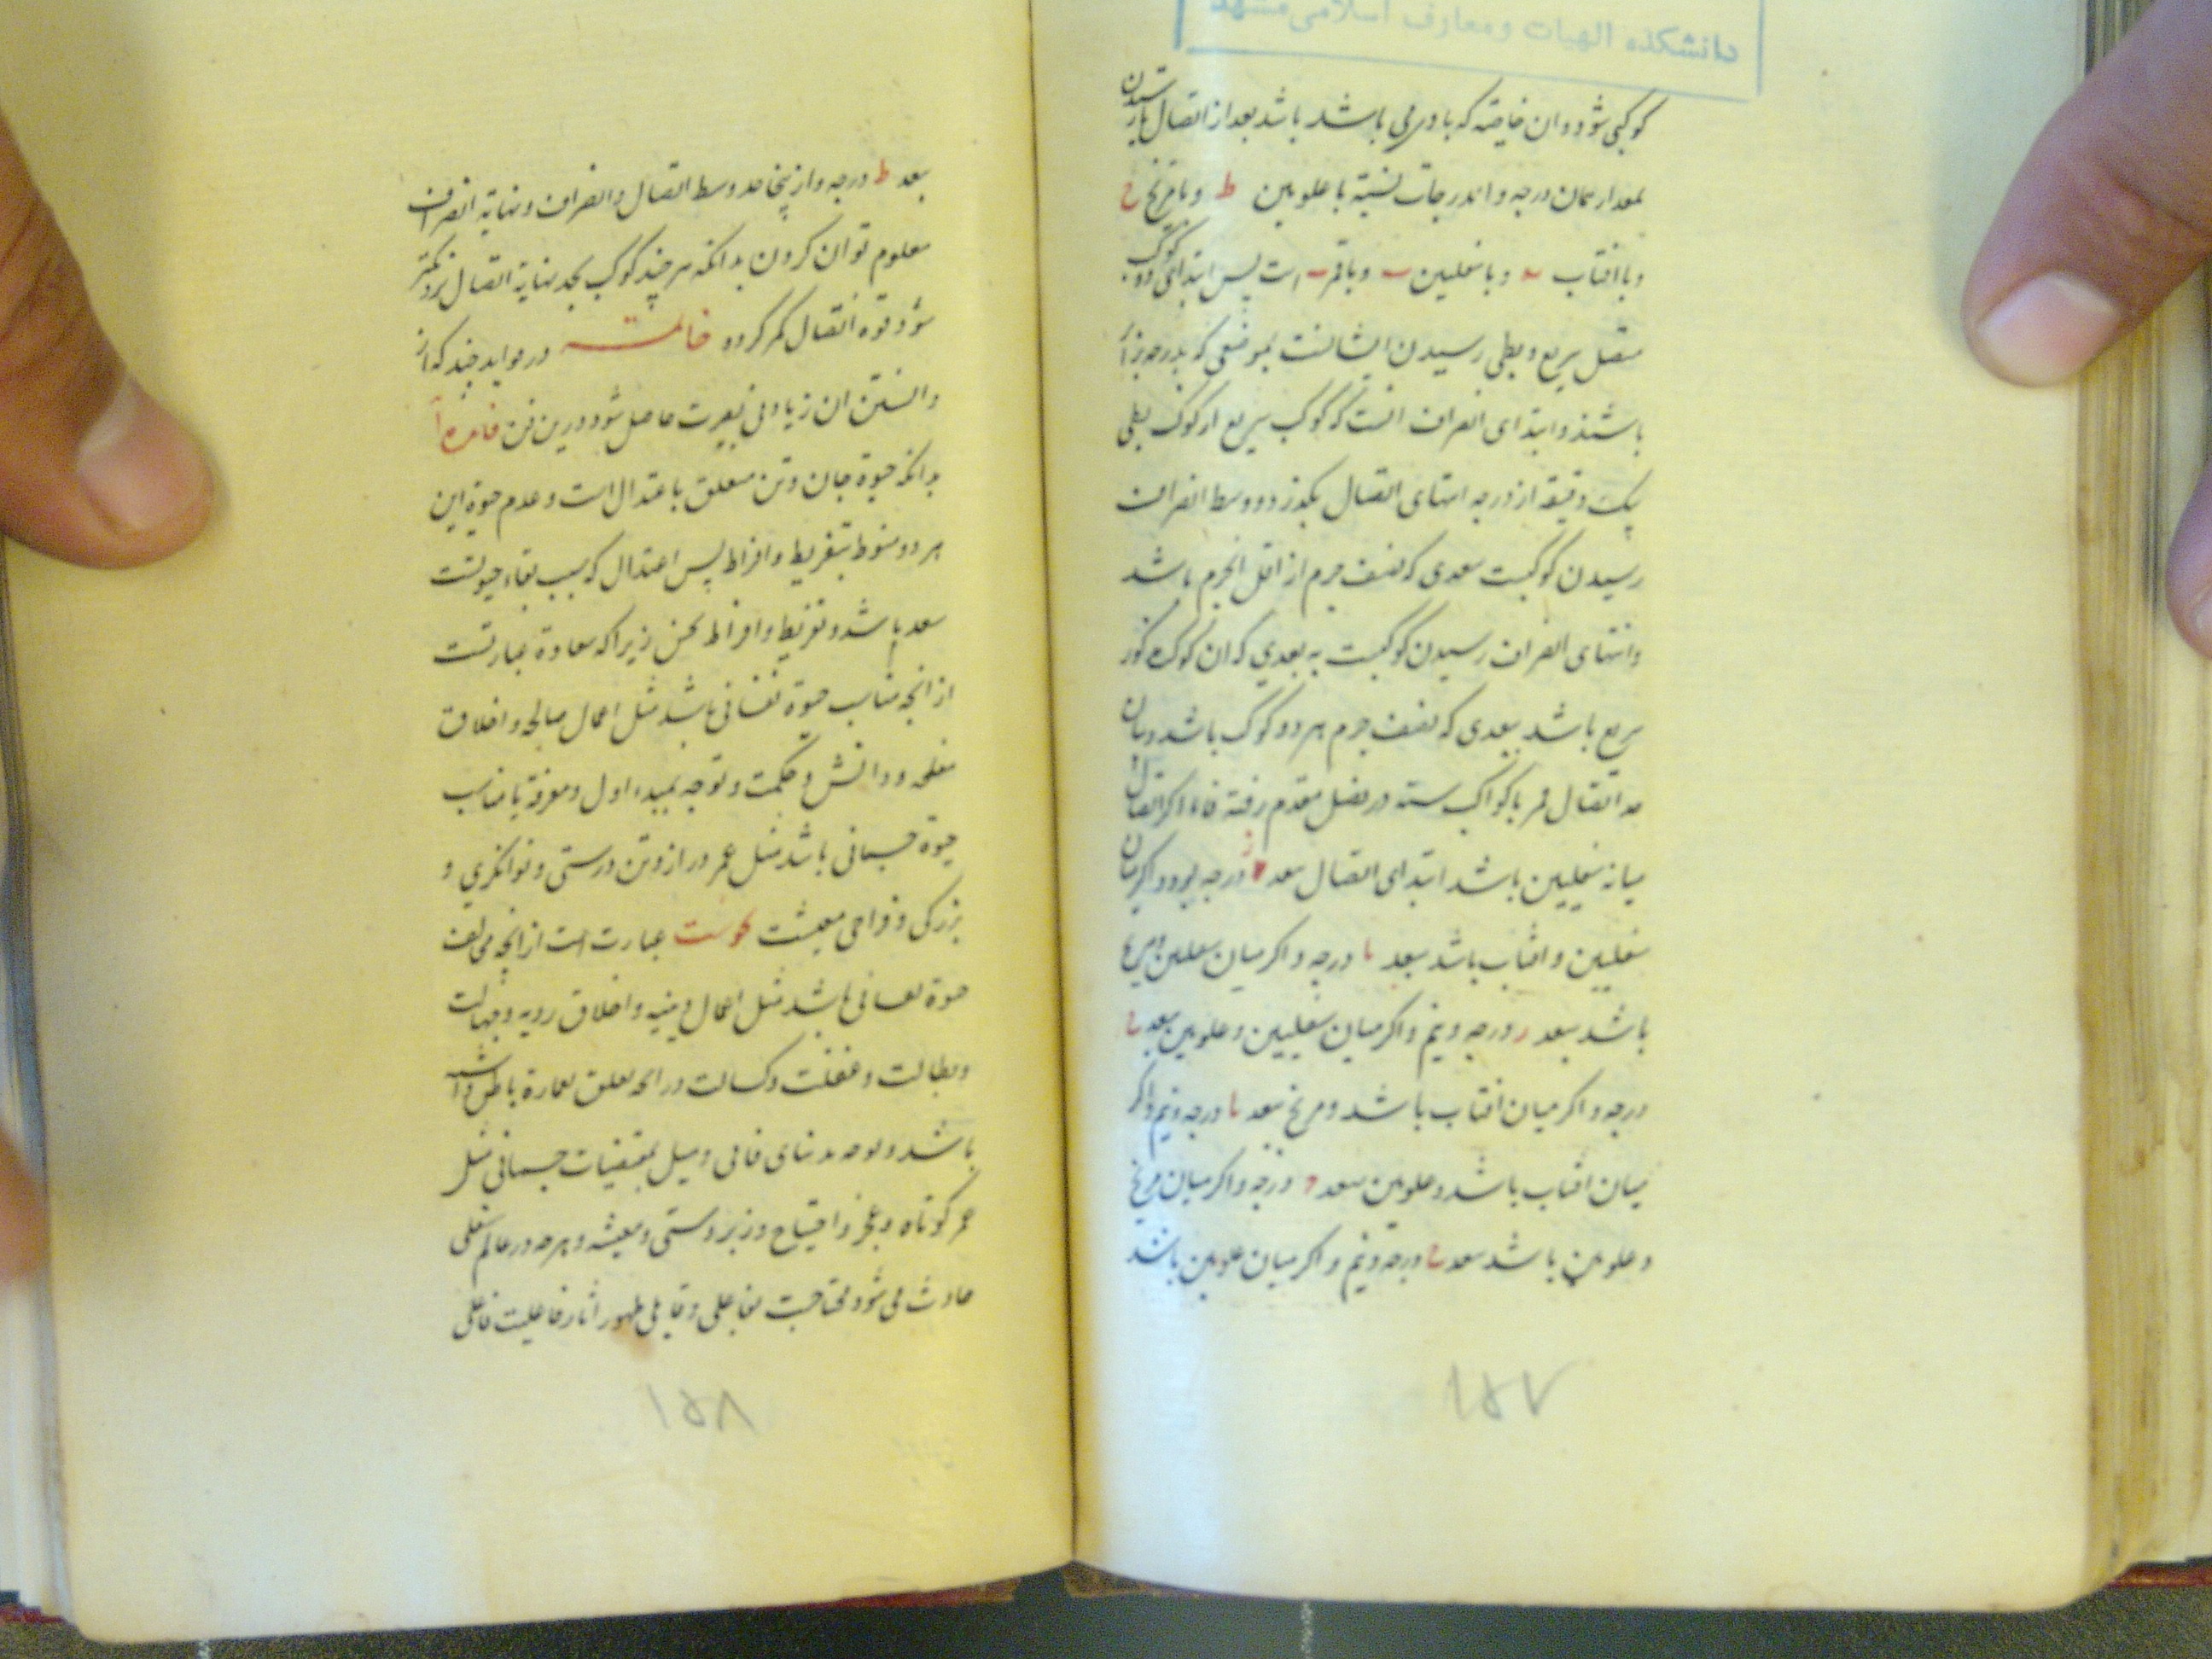 دانشکده الهیات و معارف اسلامی مشهد
کوکبی شود و ان خاصه که با وی می باشد باشد بعد از اتصال تا رسیدن
بمقدار همان درجه و اندرجات نسبة با علویین ط و با مریخ ح
و با افتاب و با سفلیین و با قمر است پس ابتدای دو کوکب
متصل سریع و بطی رسیدن ایشانست بموضعی که بدرجه
باشند و ابتدای انصراف انست که کوکب سریع از کوکب بطی
یک دقیقه از درجه انتهای اتصال بگذرد و وسط انصراف
رسیدن کوکبست ببعدی که نصف جرم از اقل الجرم باشد
و انتهای انصراف رسیدن کوکبست به بعدی که ان کوکب
سریع باشد ببعدی که نصف جرم هر دو کوکب باشد و بیان
حد اتصال قمر با کواکب سته در فصل مقدم رفته فاما اگر اتصال
میانه سفلیین باشد ابتدای اتصال ببعد ز درجه بود و اگر میان
سفلیین و افتاب باشد ببعد درجه و اگر میان سفلیین و مریخ
باشد ببعد درجه و نیم و اگر میان سفلیین و علویین ببعد ح
درجه و اگر میان افتاب باشد و مریخ ببعد درجه و نیم و اگر
میان افتاب باشد و علویین ببعد درجه و اگر میان مریخ
و علویین باشد ببعد ح درجه و نیم و اگر میان علویین باشد
۱۵۷
ببعد ط درجه و از ینجا حد وسط اتصال و انصراف و نهایة انصراف
معلوم توان کردن بدانکه هر چند کوکب بحد نهایة اتصال نزدیکتر
شود قوه اتصال کمتر گردد خاتمه در فواید چند که از
دانستن ان زیادتی بصیرت حاصل شود درین فن فایده آ
بدانکه حیوة جان و تن متعلق باعتدال است و عدم حیوة این
هر دو منوط بتفریط و افراط پس اعتدال که سبب بقاء حیوتست
سعد باشد و تفریط و افراط نحس زیرا که سعادة عبارتست
از انچه مناسب حیوة نفسانی باشد مثل اعمال صالحه و اخلاق
و دانش و حکمت و توجه بمبدء اول و معرفة یا مناسب
حیوة جسمانی باشد مثل عمر دراز و تن درستی و توانگری و
بزرگی و فراخی معیشت نحوست عبارت است از انچه مخالف
حیوة نفسانی باشد مثل اعمال دنیه و اخلاق ردیه و جهالت
و بطالت و غفلت و کسالت در انچه تعلق بعمارة باطن داشته
باشد و توجه بدنیای فانی و میل بمقتضیات جسمانی مثل
عمر کوتاه و عجز و احتیاج و زبردستی و معیشه و هرچه در عالم سفلی
حادث می شود محتاجست بفاعلی و قابلی ظهور اثار فاعلیت فاعلی
۱۵۸